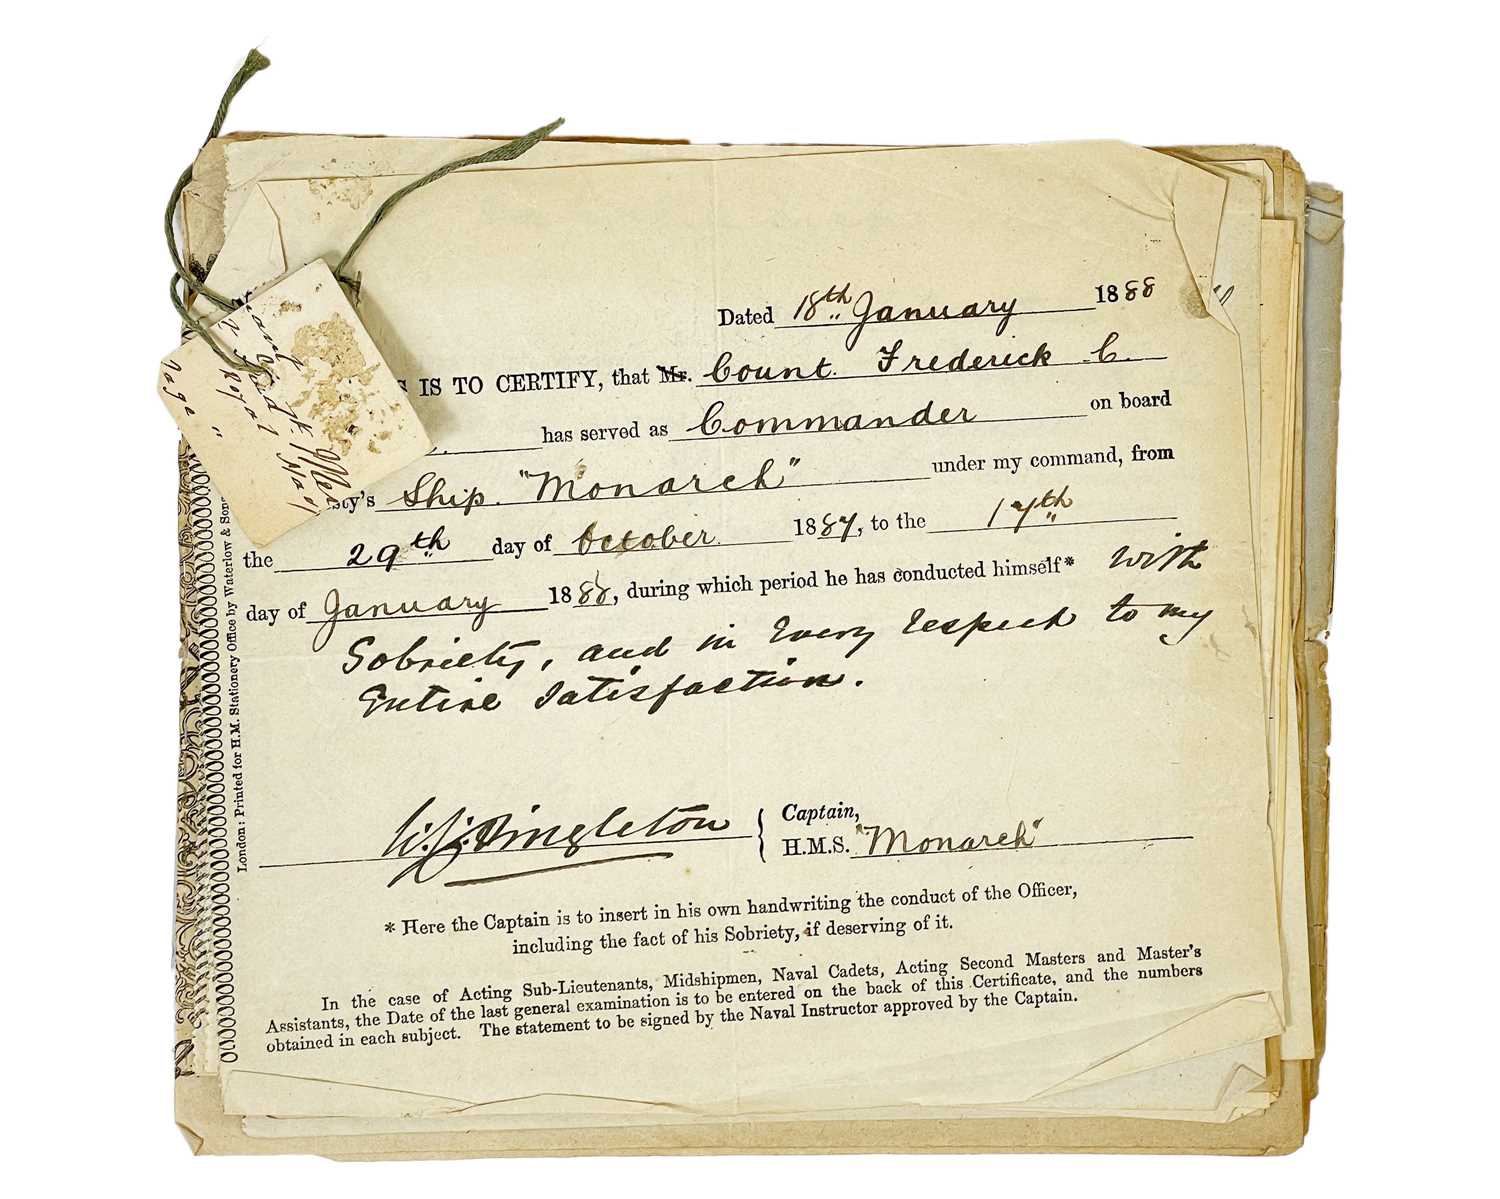 Dated 18th January 1888
IS TO CERTIFY, that Mr. Count Frederick C.
has served as Commander on board
sty's Ship "Monarch" under my command, from
the 29th day of October 1887, to the 17th
day of January 1888, during which period he has conducted himself* with
Sobriety, and in Every respect to my
Entire Satisfaction.
Singleton { Captain,
H.M.S. "Monarch"
* Here the Captain is to insert in his own handwriting the conduct of the Officer,
including the fact of his Sobriety, if deserving of it.
In the case of Acting Sub-Lieutenants, Midshipmen, Naval Cadets, Acting Second Masters and Master's
Assistants, the Date of the last general examination is to be entered on the back of this Certificate, and the numbers
obtained in each subject. The statement to be signed by the Naval Instructor approved by the Captain.
London: Printed for H.M. Stationery Office by Waterlow & Sons
Royal Na